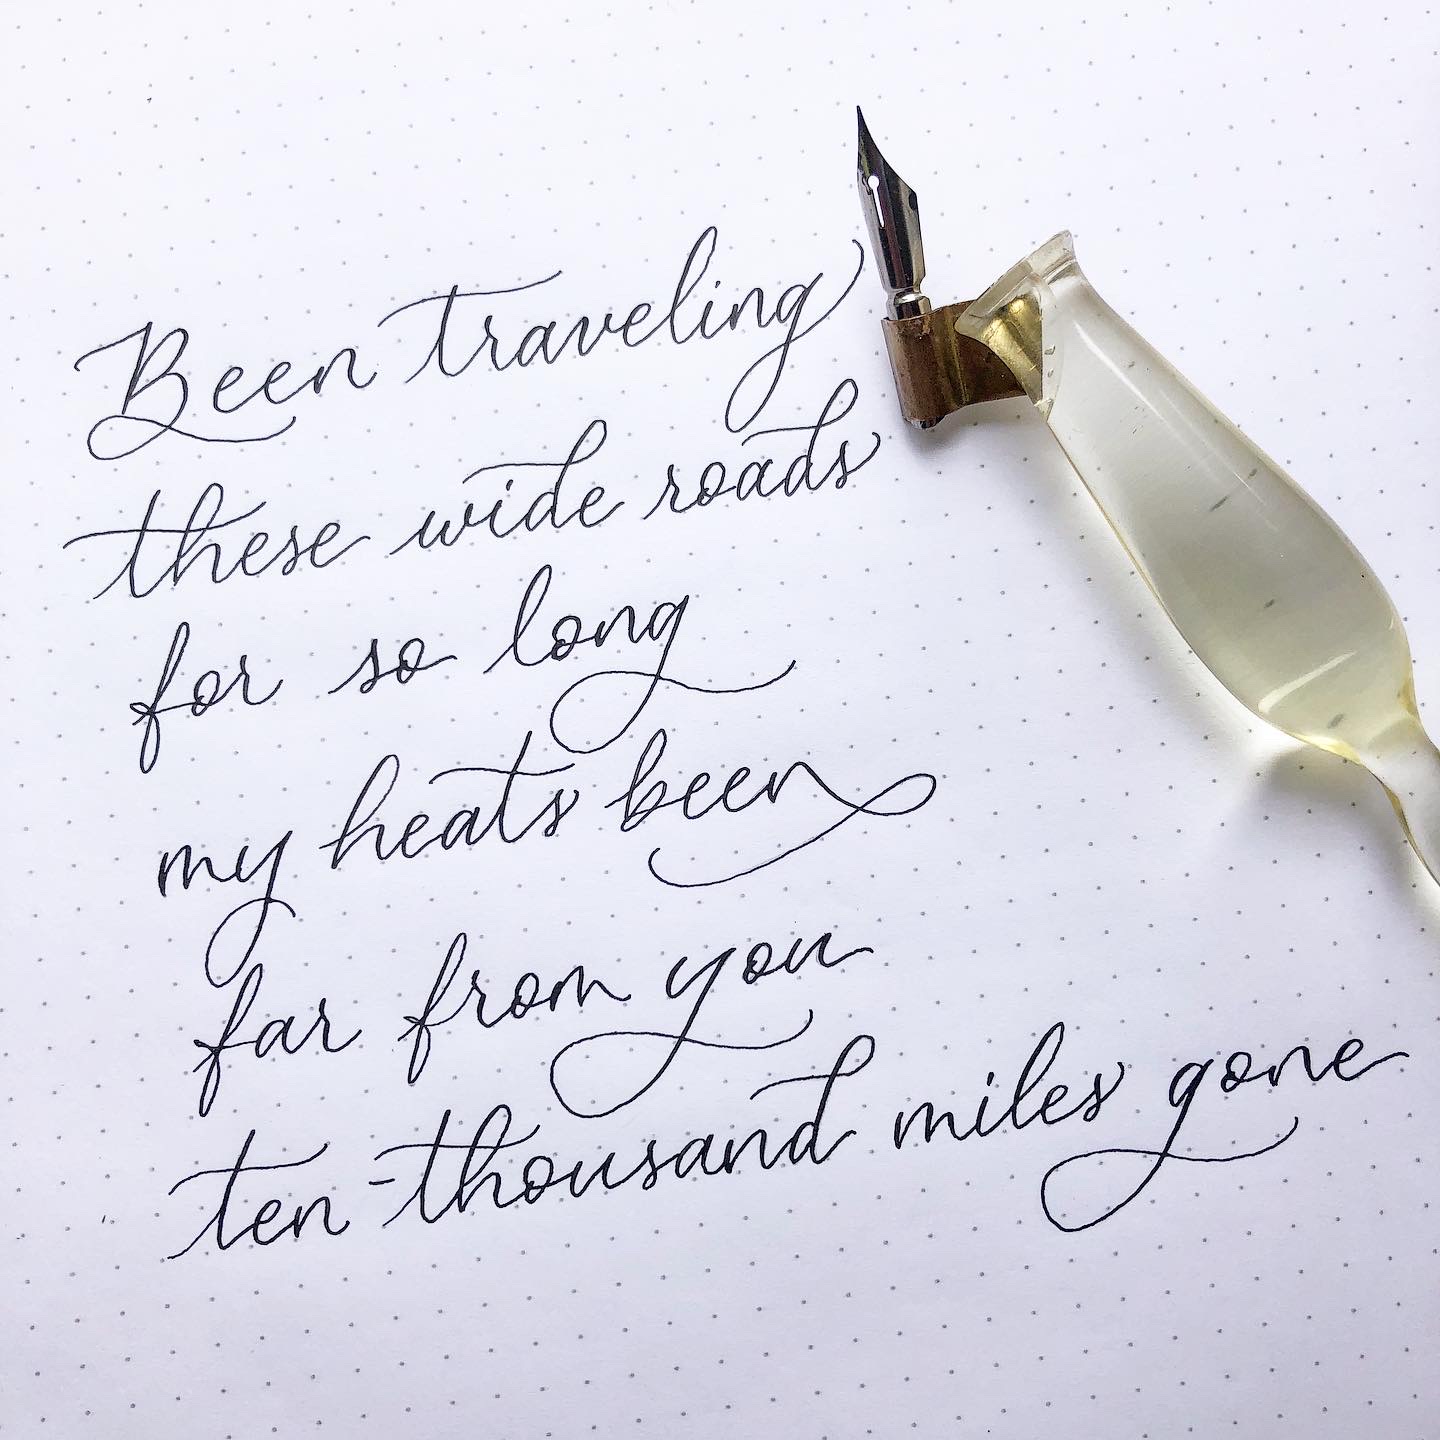 Been traveling
these wide roads
for so long
my heats been
far from you
ten-thousand miles gone